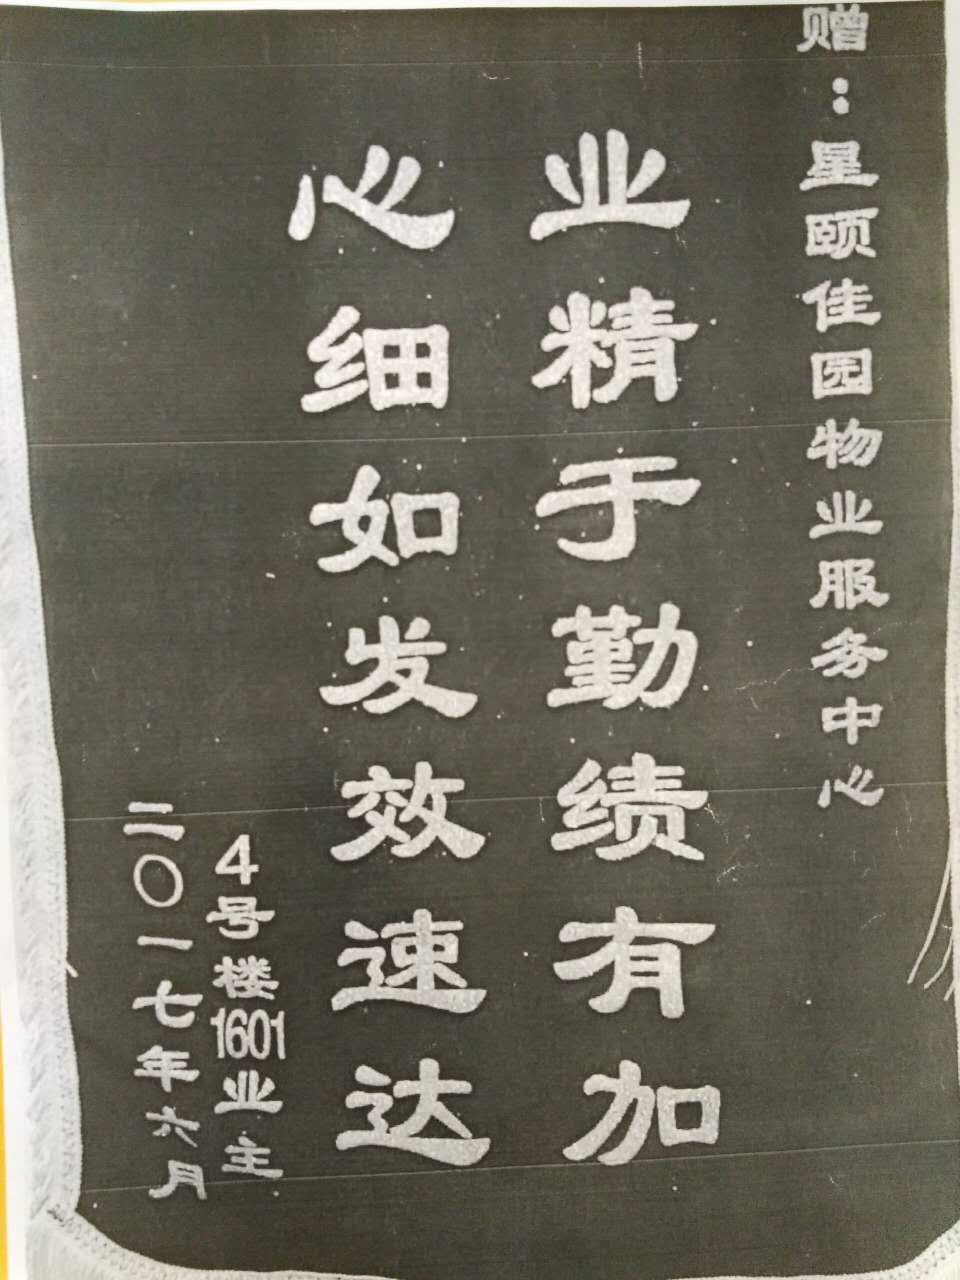 赠：星颐佳园物业服务中心
业精于勤绩有加
心细如发效速达
4号楼1601业主
二〇一七年六月